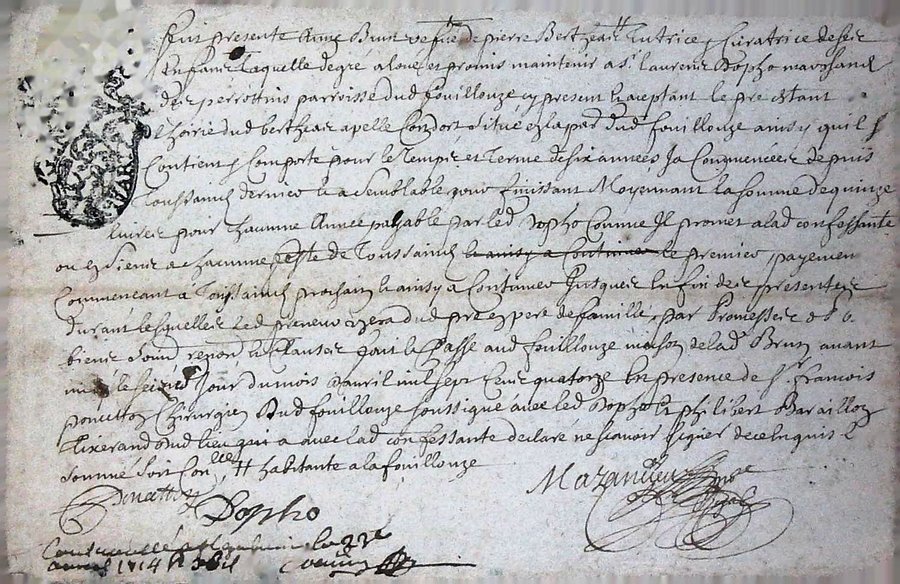 Fut presente Anne Brun vefve de pierre Bertheas ## tutrice & Curatrice de ses
Enfans Laquelle de gré a loué et promis maintenir a sr laurens Dopho marchand
des perrottins parroisse dud fouillouze cy present & aceptant le pre
hoirie dud bertheas apellé situé en la par dud fouillouze ainsy quil
Contient & Comporte pour le Temps et terme de six années Ja Commencées depuis
toussaincts dernier & a semblable jour finissant Moyennant la somme de quinze
livres pour chacune Année payable par led Dopho Comme Il promet a lad confessante
ou es siens a chacune feste de Toussaincts & ainsy a Continuer le premier payement
Commencant à Toussaincts prochain & ainsy a Continuer Jusques En fin des presentes
durant lesquelles led preneur pere de famille, par Promesses
biens & Clauses fait & Passé aud fouillouze maison de lad Brun avant
midy le seize Jour du mois d'avril mil sept cens quatorze En presence de sr francois
Chirurgien dud fouillouze soussigné avec led Dopho & philibert Barailloz
Tixerand dud lieu qui a avec lad confessante declaré ne scavoir signer de ce Enquis &
sommé ## habitante a la fouillouze
Dopho
Mazancieu
avril 1714